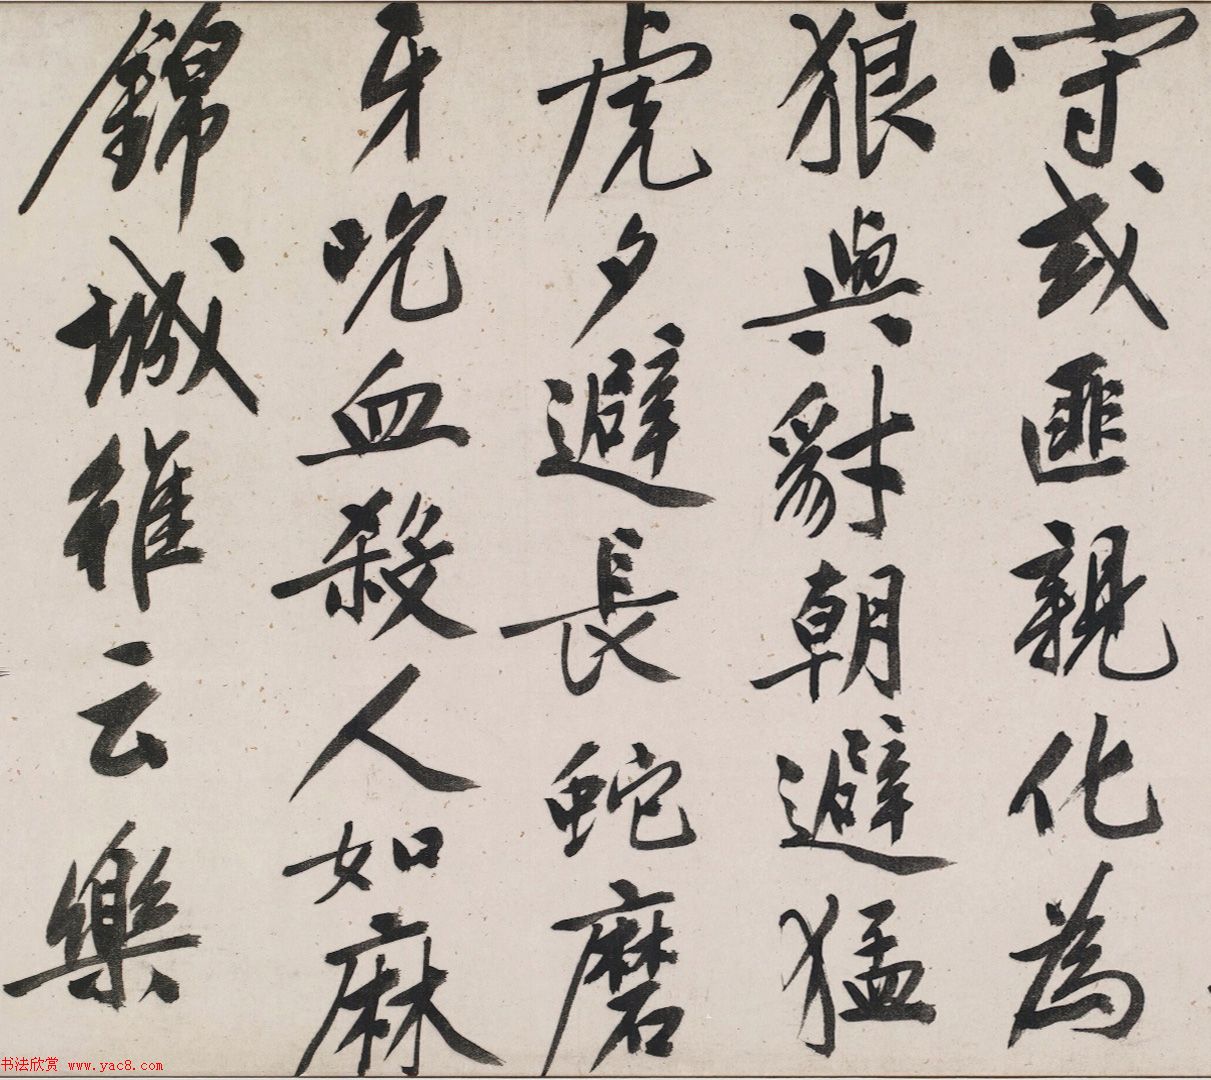 守或匪親化為
狼與豺朝避猛
虎夕避長蛇磨
牙吮血殺人如麻
錦城雖云樂
书法欣赏 www.yac8.com